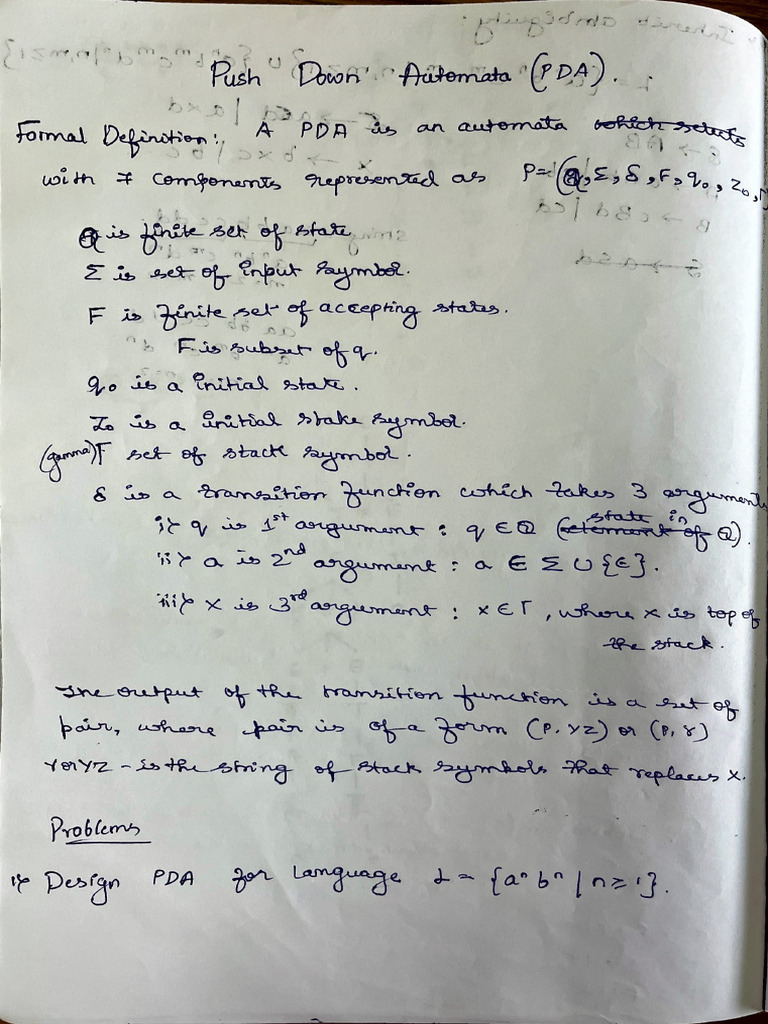 Push Down Automata (PDA).
Formal Definition: A PDA is an automata which selects
with 7 components represented as P=(Q, Σ, δ, F, q₀, Z₀, Γ
Q is finite set of state
Σ is set of input symbol.
F is finite set of accepting states.
F is subset of q.
q₀ is a initial state.
Z₀ is a initial stake symbol.
(gamma) Γ set of stack symbol.
δ is a transition function which takes 3 arguments
i> q is 1st argument : q ∈ Q (element of state in Q).
ii> a is 2nd argument : a ∈ Σ ∪ {ϵ}.
iii> x is 3rd argument : x ∈ Γ, where x is top of
the stack.
The output of the transition function is a set of
pair, where pair is of a form (P. YZ) or (P, Y)
Y or YZ - is the string of stack symbols that replaces X.
Problems
1> Design PDA for language L = {aⁿ bⁿ | n ≥ 1}.